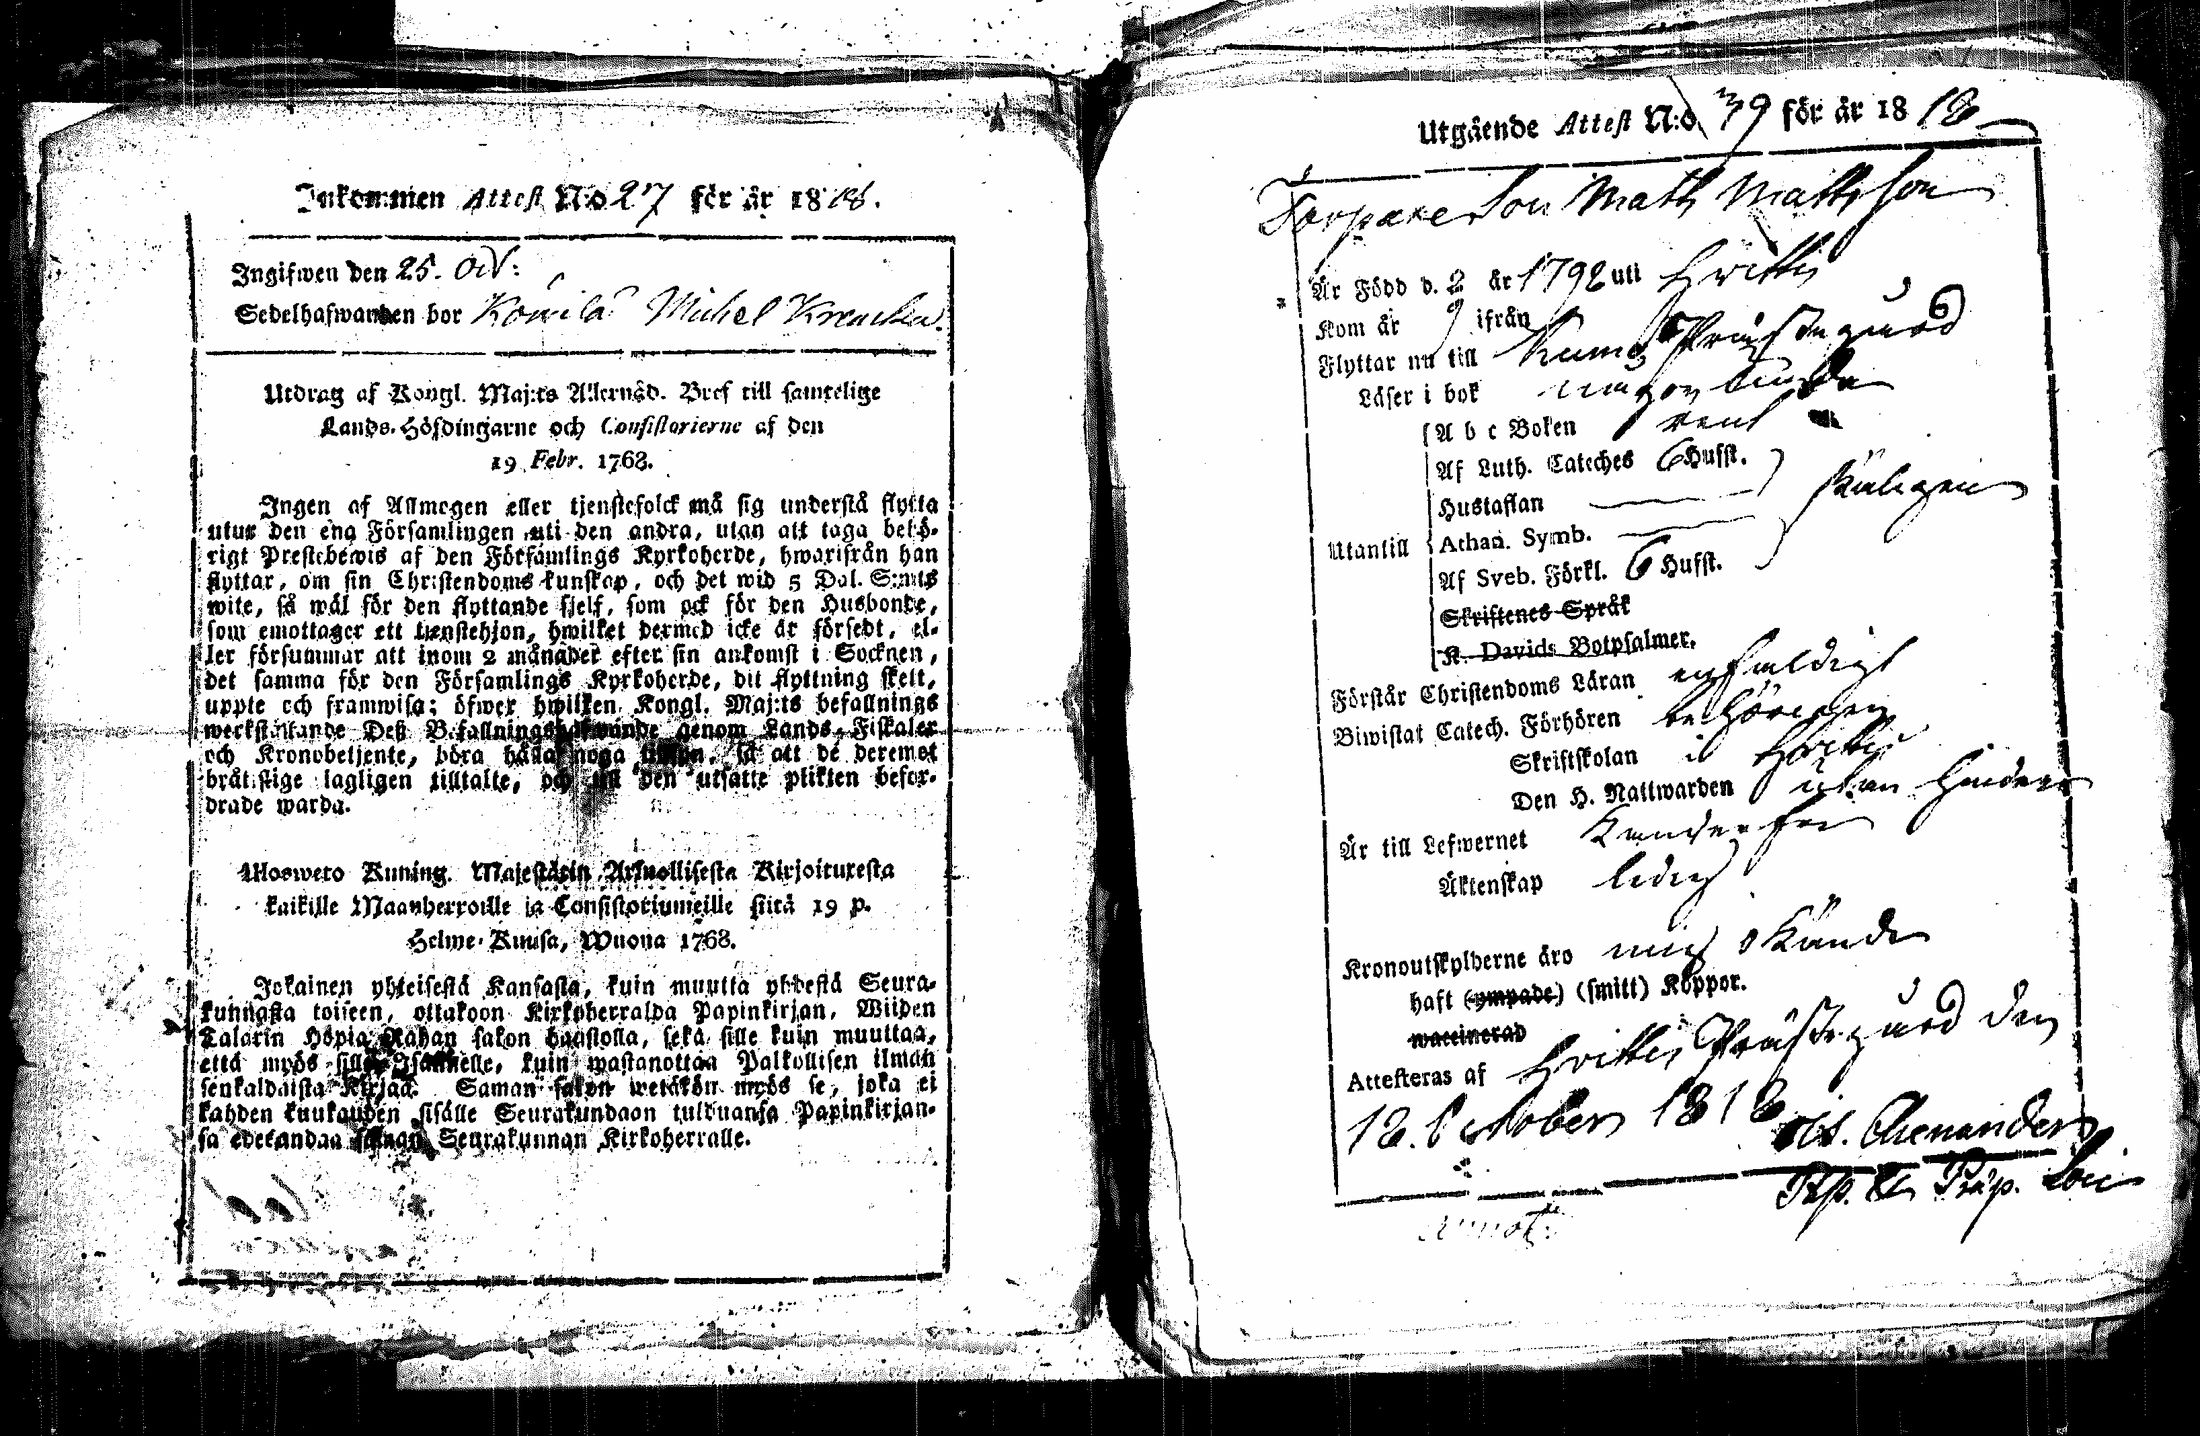 Inkommen Attest N:o 27 för år 1818.
Ingifwen den 25. Oct:
Sedelhafwanden bor Michel
Utdrag af Kongl. Maj:ts Allernåd. Bref till samtelige
Lands-Höfdingarne och Consistorierne af den
19 Febr. 1768.
Ingen af Allmogen eller tjenstefolck må sig understå flytta
utur den ena Församlingen uti den andra, utan att taga behö-
rigt Prestebewis af den Församlings Kyrkoherde, hwarifrån han
flyttar, om sin Christendoms kunskap, och det wid 5 Dal. S:mts
wite, så wäl för den flyttande sjelf, som ock för den Husbonde,
som emottager ett tjenstehjon, hwilket dermed icke är försedt, el-
ler försummar att inom 2 månader efter sin ankomst i Socknen,
det samma för den Församlings Kyrkoherde, dit flyttning skett,
uppte och framwisa; öfwer hwilken Kongl. Maj:ts befallnings
werkställande Deß Befallningshafwande genom Lands-Fiskaler
och Kronobetjente, böra hålla noga tillsyn, så att de deremot
bråtslige lagligen tilltalte, och till den utsatte plikten befor-
drade warda.
Ulosweto Kuning. Majestätin Armollisesta Kirjoituxesta
kaikille Maanherroille ja Consistoriumeille siitä 19 p.
Helme-Kuusa, Wuona 1768.
Jokainen yhteisestä Kansasta, kuin muutta yhdestä Seura-
kunnasta toiseen, ottakoon Kirkoherralda Papinkirjan, Wiiden
Talarin Hopia Rahan sakon haastolla, sekä sille kuin muuttaa,
että myös sille Isännelle, kuin wastanottaa Palkollisen ilman
senkaldaista Kirjaa. Saman sakon wetäkön myös se, joka ei
kahden kuukauden sisälle Seurakundaan tulduansa Papinkirjan-
sa edesandaa saman Seurakunnan Kirkoherralle.
Utgående Attest N:o 39 för år 1818
Torpare Son Matts Mattsson
Är Född d. 2 år 1792 uti Hvittis
Kom år ifrån
Flyttar nu till Kumo Prästegård
Läser i bok
A b c Boken rent
Af Luth. Cateches 6 Hufst.
Hustaflan
Athan. Symb.
Utantill
Af Sveb. Förkl. 6 Hufst.
Skriftenes Språk
K. Davids Botpsalmer.
Förstår Christendoms Läran enfaldigt
Biwistat Catech. Förhören behörigen
Skriftskolan i Hvittis
Den H. Nattwarden utan hinder
Är till Lefwernet
Äktenskap ledig
Kronoutskylderne äro mig okände
haft (ympade) (smitt) Koppor.
waccinerad
Attesteras af Hvittis Prästegård den
18. October 1818 Is. Chenander